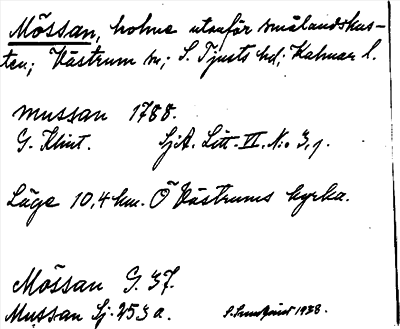 Mössan, holme utanför smålandskus-
ten; Västrum sn; S. Tjusts hd; Kalmar l.
mussan 1788.
G. Klint. SjA. Litt. II. No 3,1.
Läge 10,4 km. Ö Västrums kyrka.
Mössan G. 37.
Mussan Sj. 253 a. 1938.